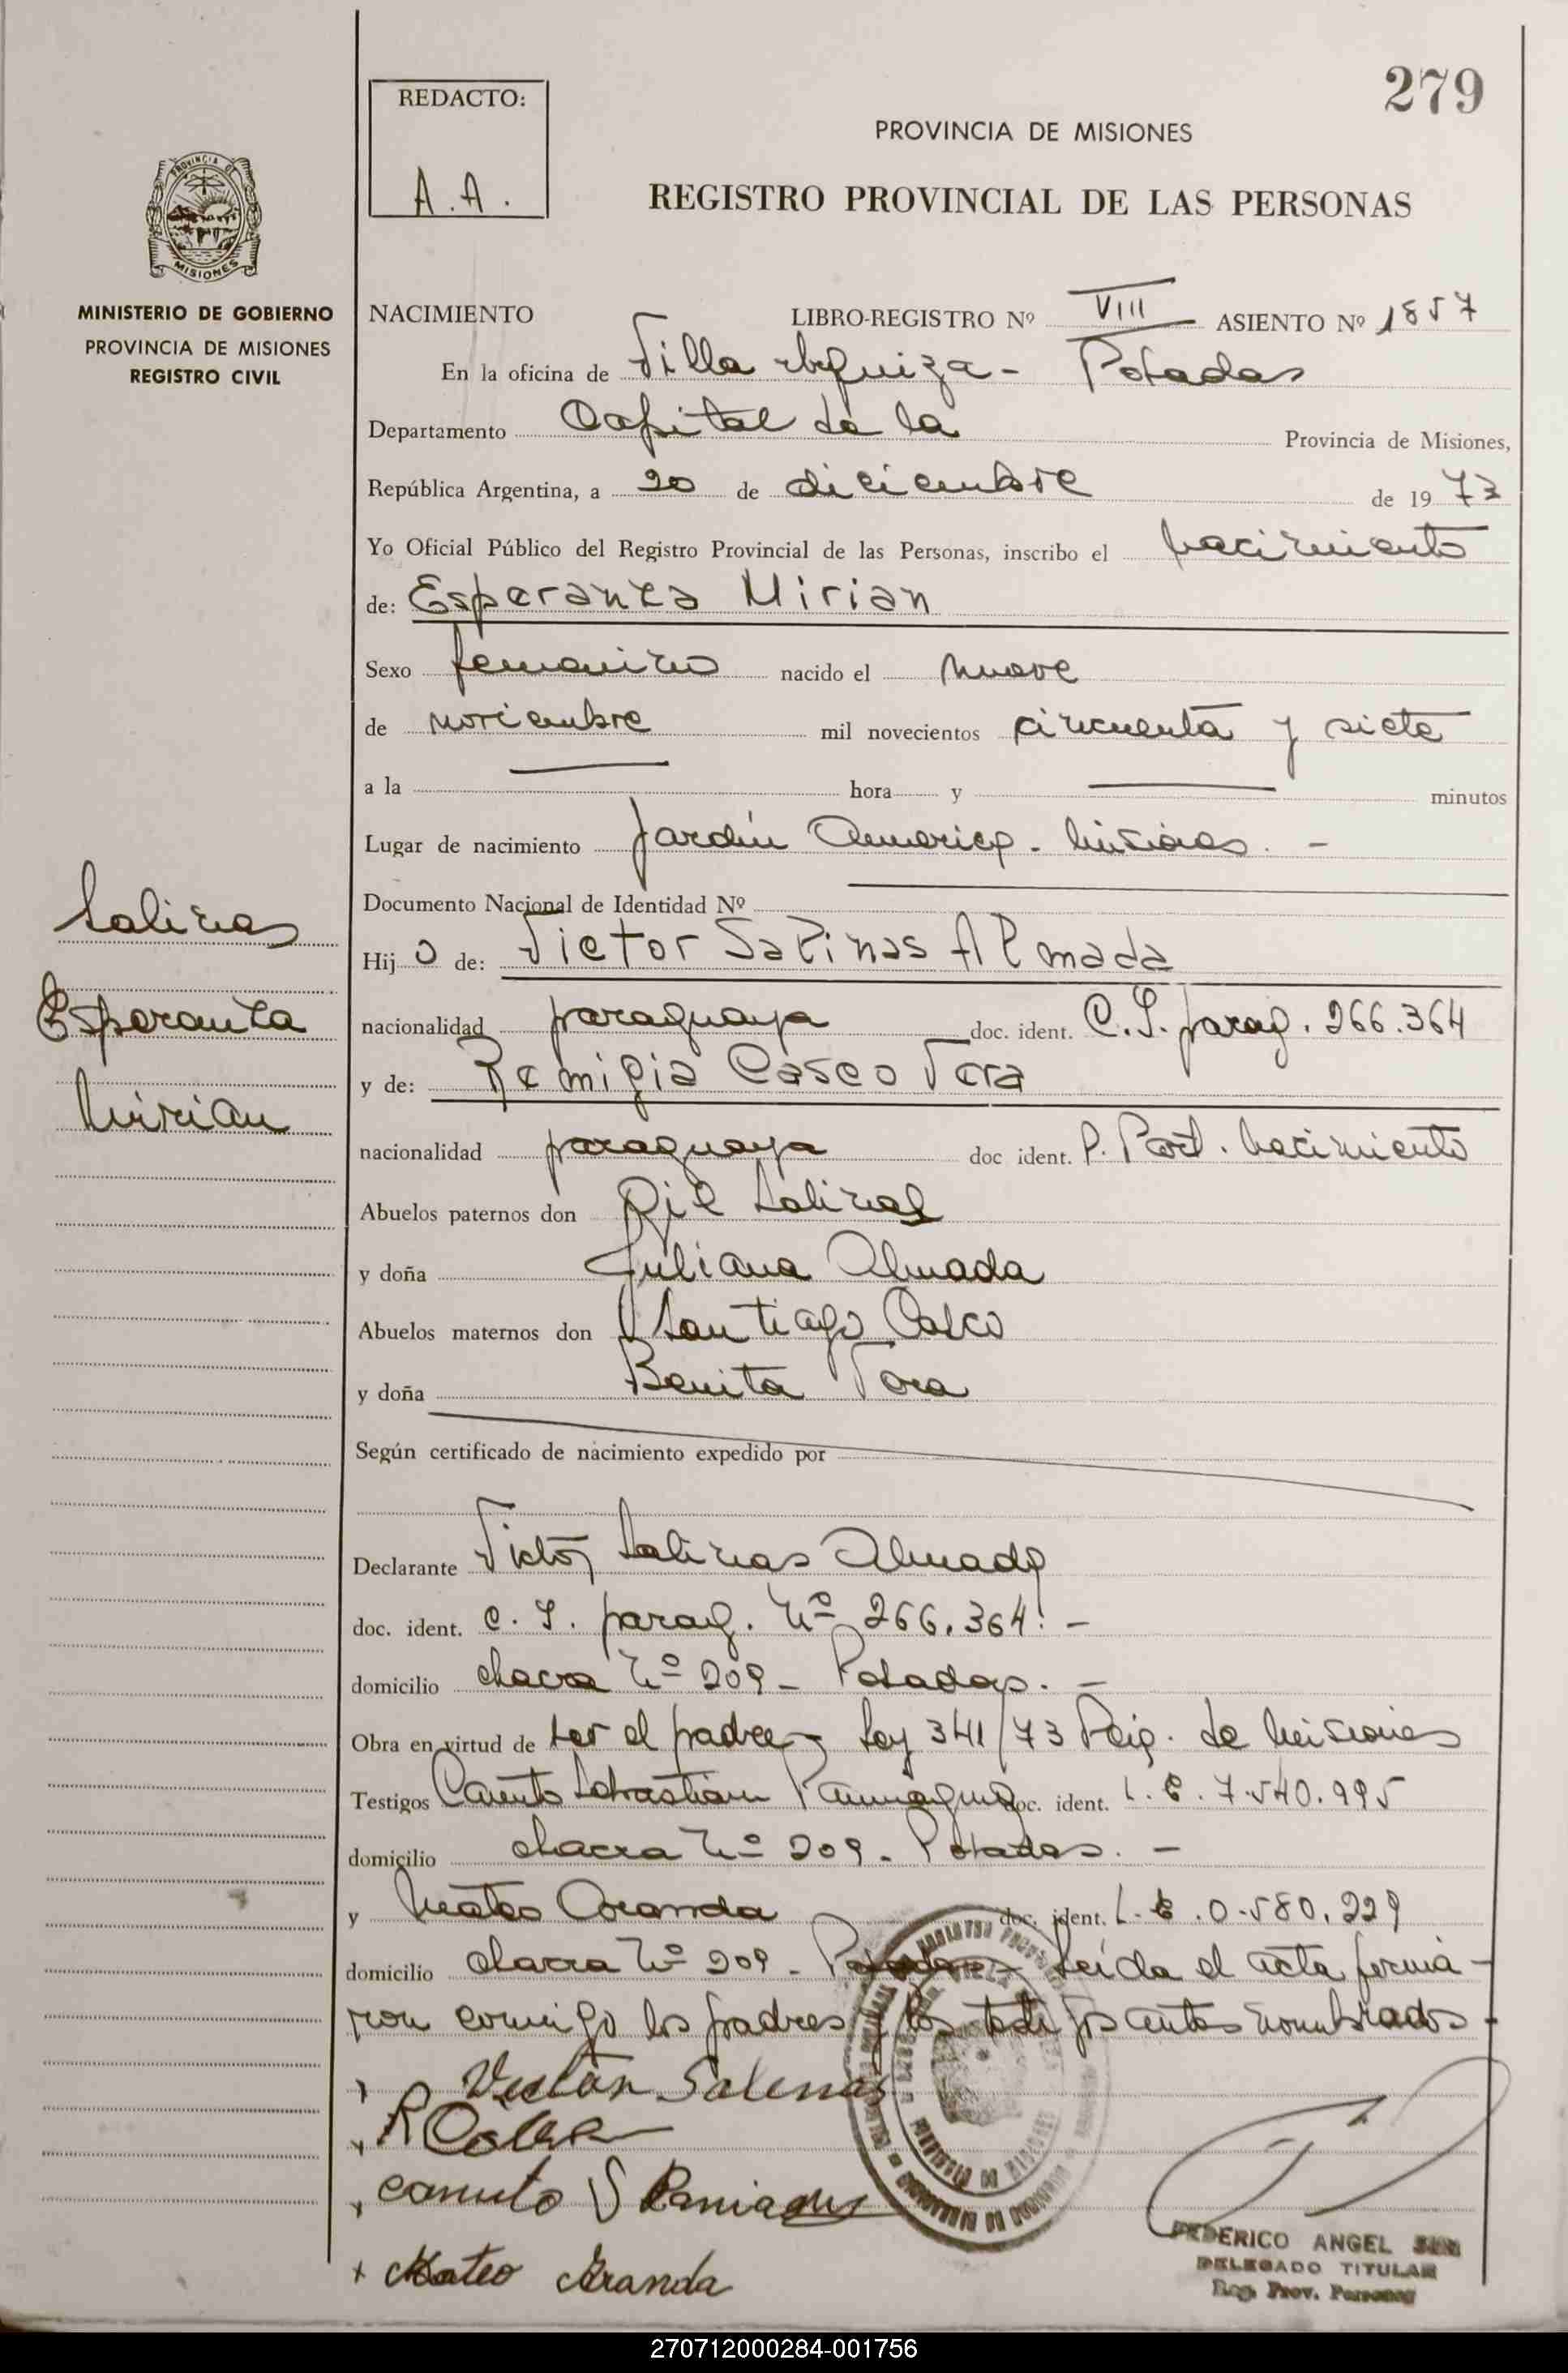 279
REDACTO:
A.A.
PROVINCIA DE MISIONES
REGISTRO PROVINCIAL DE LAS PERSONAS
PROVINCIA D
MISIONES
MINISTERIO DE GOBIERNO
PROVINCIA DE MISIONES
REGISTRO CIVIL
NACIMIENTO LIBRO-REGISTRO Nº VIII ASIENTO Nº 1857
En la oficina de Villa Urquiza - Posadas
Departamento Capital de la Provincia de Misiones,
República Argentina, a 20 de diciembre de 19 73
Yo Oficial Público del Registro Provincial de las Personas, inscribo el nacimiento
de: Esperanza Mirian
Sexo femenino nacido el nueve
de noviembre mil novecientos cincuenta y siete
a la hora y minutos
Lugar de nacimiento Jardín America - Misiones. -
Documento Nacional de Identidad Nº
Hij o de: Victor Salinas Almada
nacionalidad paraguaya doc. ident. C.I. parag. 266.364
y de: Remigia Casco Vera
nacionalidad paraguaya doc ident. P. Part. Nacimiento
Abuelos paternos don Gil Salinas
y doña Juliana Almada
Abuelos maternos don Santiago Casco
y doña Benita Vera
Según certificado de nacimiento expedido por
Salinas
Esperanza
Mirian
Declarante Victor Salinas Almada
doc. ident. C. I. parag. Nº 266.364. -
domicilio chacra Nº 209 - Posadas. -
Obra en virtud de ser el padre - Ley 341/73 de Misiones
Testigos Sebastian Paniagua doc. ident. L. E. 7.540.995
domicilio chacra Nº 209 - Posadas. -
y Mateo Aranda doc. ident. L. E. 0.580.229
domicilio chacra Nº 209 - Posadas - Leída el acta firma-
ron conmigo los padres y los testigos antes nombrados -
Victor Salinas
Canuto S Paniagua
x Mateo Aranda
FEDERICO ANGEL
DELEGADO TITULAR
Reg. Prov. Personas
270712000284-001756